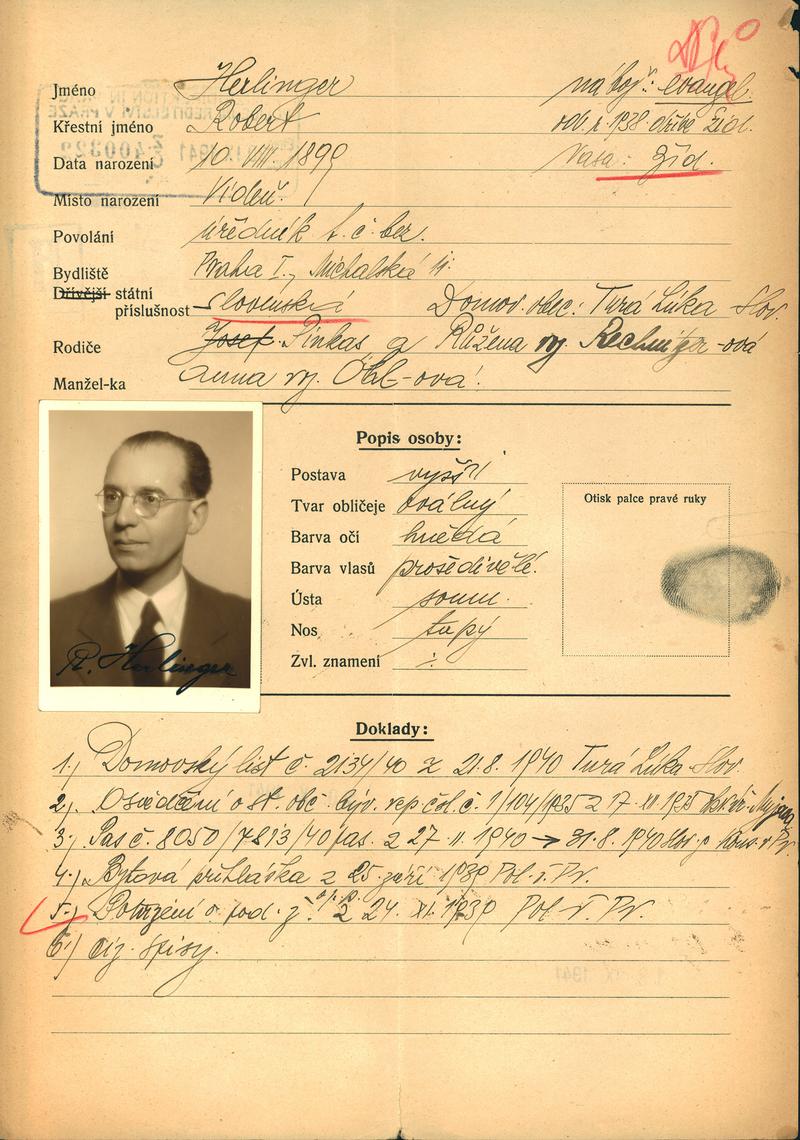 Jméno Herlinger nábož: evangel.
Křestní jméno Robert od. r. 1938 dříve žid.
Data narození 10. VIII. 1899 rasa: žid.
Místo narození Vídeň.
Povolání úředník t. č. bez.
Bydliště Praha I., Michalská 11.
Dřívější státní
příslušnost slovenská Domov. obec: Turá Lúka Slov.
Rodiče Josef Pinkas a Růžena roz. -ová
Manžel-ka Anna roz. Öhl-ová.
R. Herlinger
Popis osoby:
Postava vyšší
Tvar obličeje oválný
Barva očí hnědá
Barva vlasů prošedivělé.
Ústa soum.
Nos tupý
Zvl. znamení ÷
Otisk palce pravé ruky
Doklady:
1.) Domovský list č. 2134/40 z 21.8. 1940 Turá Lúka Slov.
2.) Osvědčení o st. obč. býv. rep. čsl. č. 1/104/1935 z 17. XII 1935
3.) Pas č. 8050/7813/40 z 27. II. 1940 → 31. 8. 1940 Slov.
4.) Bytová přihláška z 25 září 1939 Pol. ř. Pr.
5.) Potvrzení o pod. ž. o p. p. z 24. XI. 1939 Pol. ř. Pr.
6.) ciz. spisy.